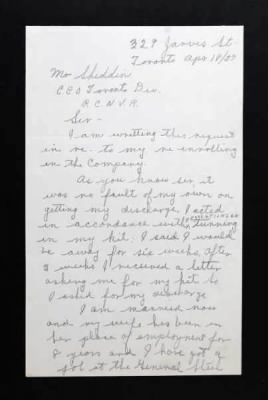 329 Jarvis St.
Toronto Apr 18/32
Mr Sheddin
C.C.O Toronto Div.
R.C.N.V.R.
Sir -
I am writting this request
in re. to my re enrolling
in the Company.
As you know sir it
was no fault of my own on
getting my discharge I acted
in accordance with turning
in my kit. I said I would
be away for six weeks, after
weeks I received a letter
asking me for my kit so
I asked for my discharge
I am married now
and my wife has been in
her place of employment for
8 years and I have got a
job at the General Steel